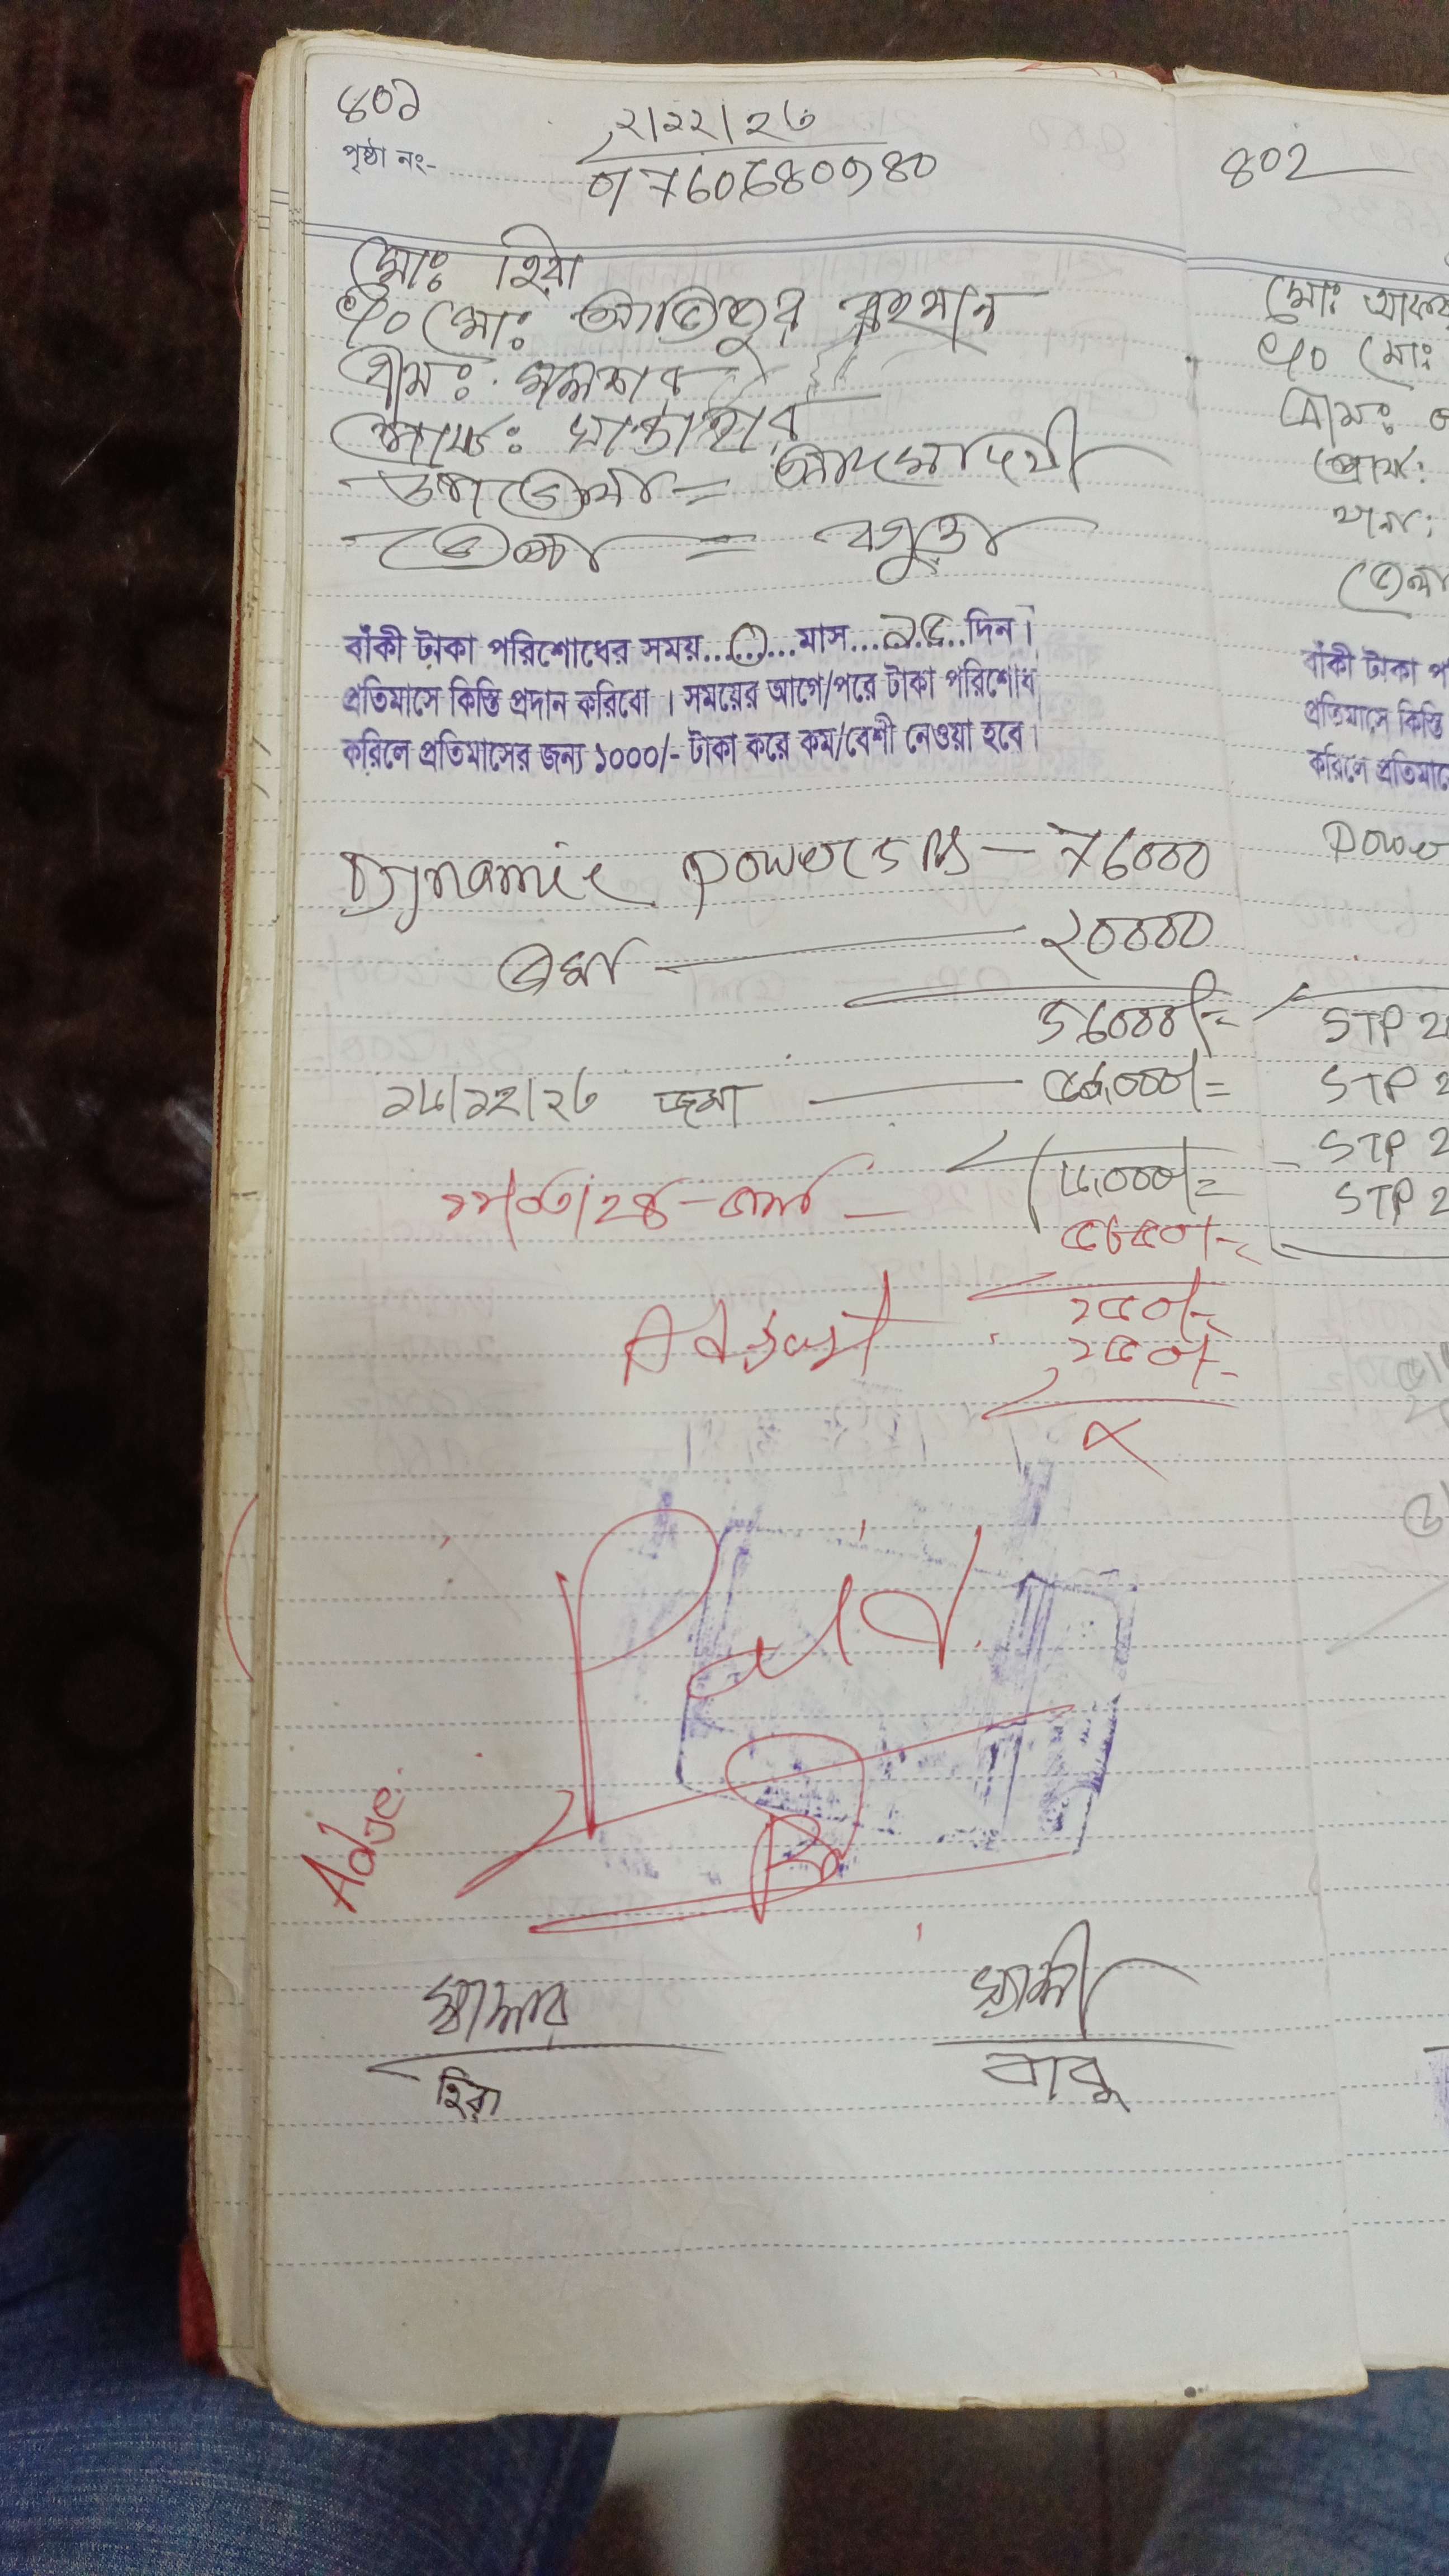 ৪০১
২/১২/২৩
পৃষ্ঠা নং-
01760680980
মোঃ হিরা
পিং মোঃ আতিকুর রহমান
গ্রামঃ
পোষ্টঃ সান্তাহার
উপজেলা = আদমদিঘী
জেলা = বগুড়া
বাঁকী টাকা পরিশোধের সময়.........মাস...১৫...দিন।
প্রতিমাসে কিস্তি প্রদান করিবো । সময়ের আগে/পরে টাকা পরিশোধ
করিলে প্রতিমাসের জন্য ১০০০/- টাকা করে কম/বেশী নেওয়া হবে।
Dynamic power 5 Ps — 76000
জমা — 20000
56000/=
১৮/১২/২৩ জমা — ৫০,০০০/=
৬,০০০/=
জমা — ৫৭৫০/=
Adjust
২৫০/=
২৫০/-
×
Paid
Adje.
স্বাক্ষর
হিরা
স্বাক্ষী
বাবু
802
মোঃ
পিং মোঃ
গ্রামঃ
পোষ্ট:
থানা:
জেলা
বাঁকী টাকা প
প্রতিমাসে কিস্তি
করিলে প্রতিমাসে
Power
STP 2
STP 2
STP 2
STP 2